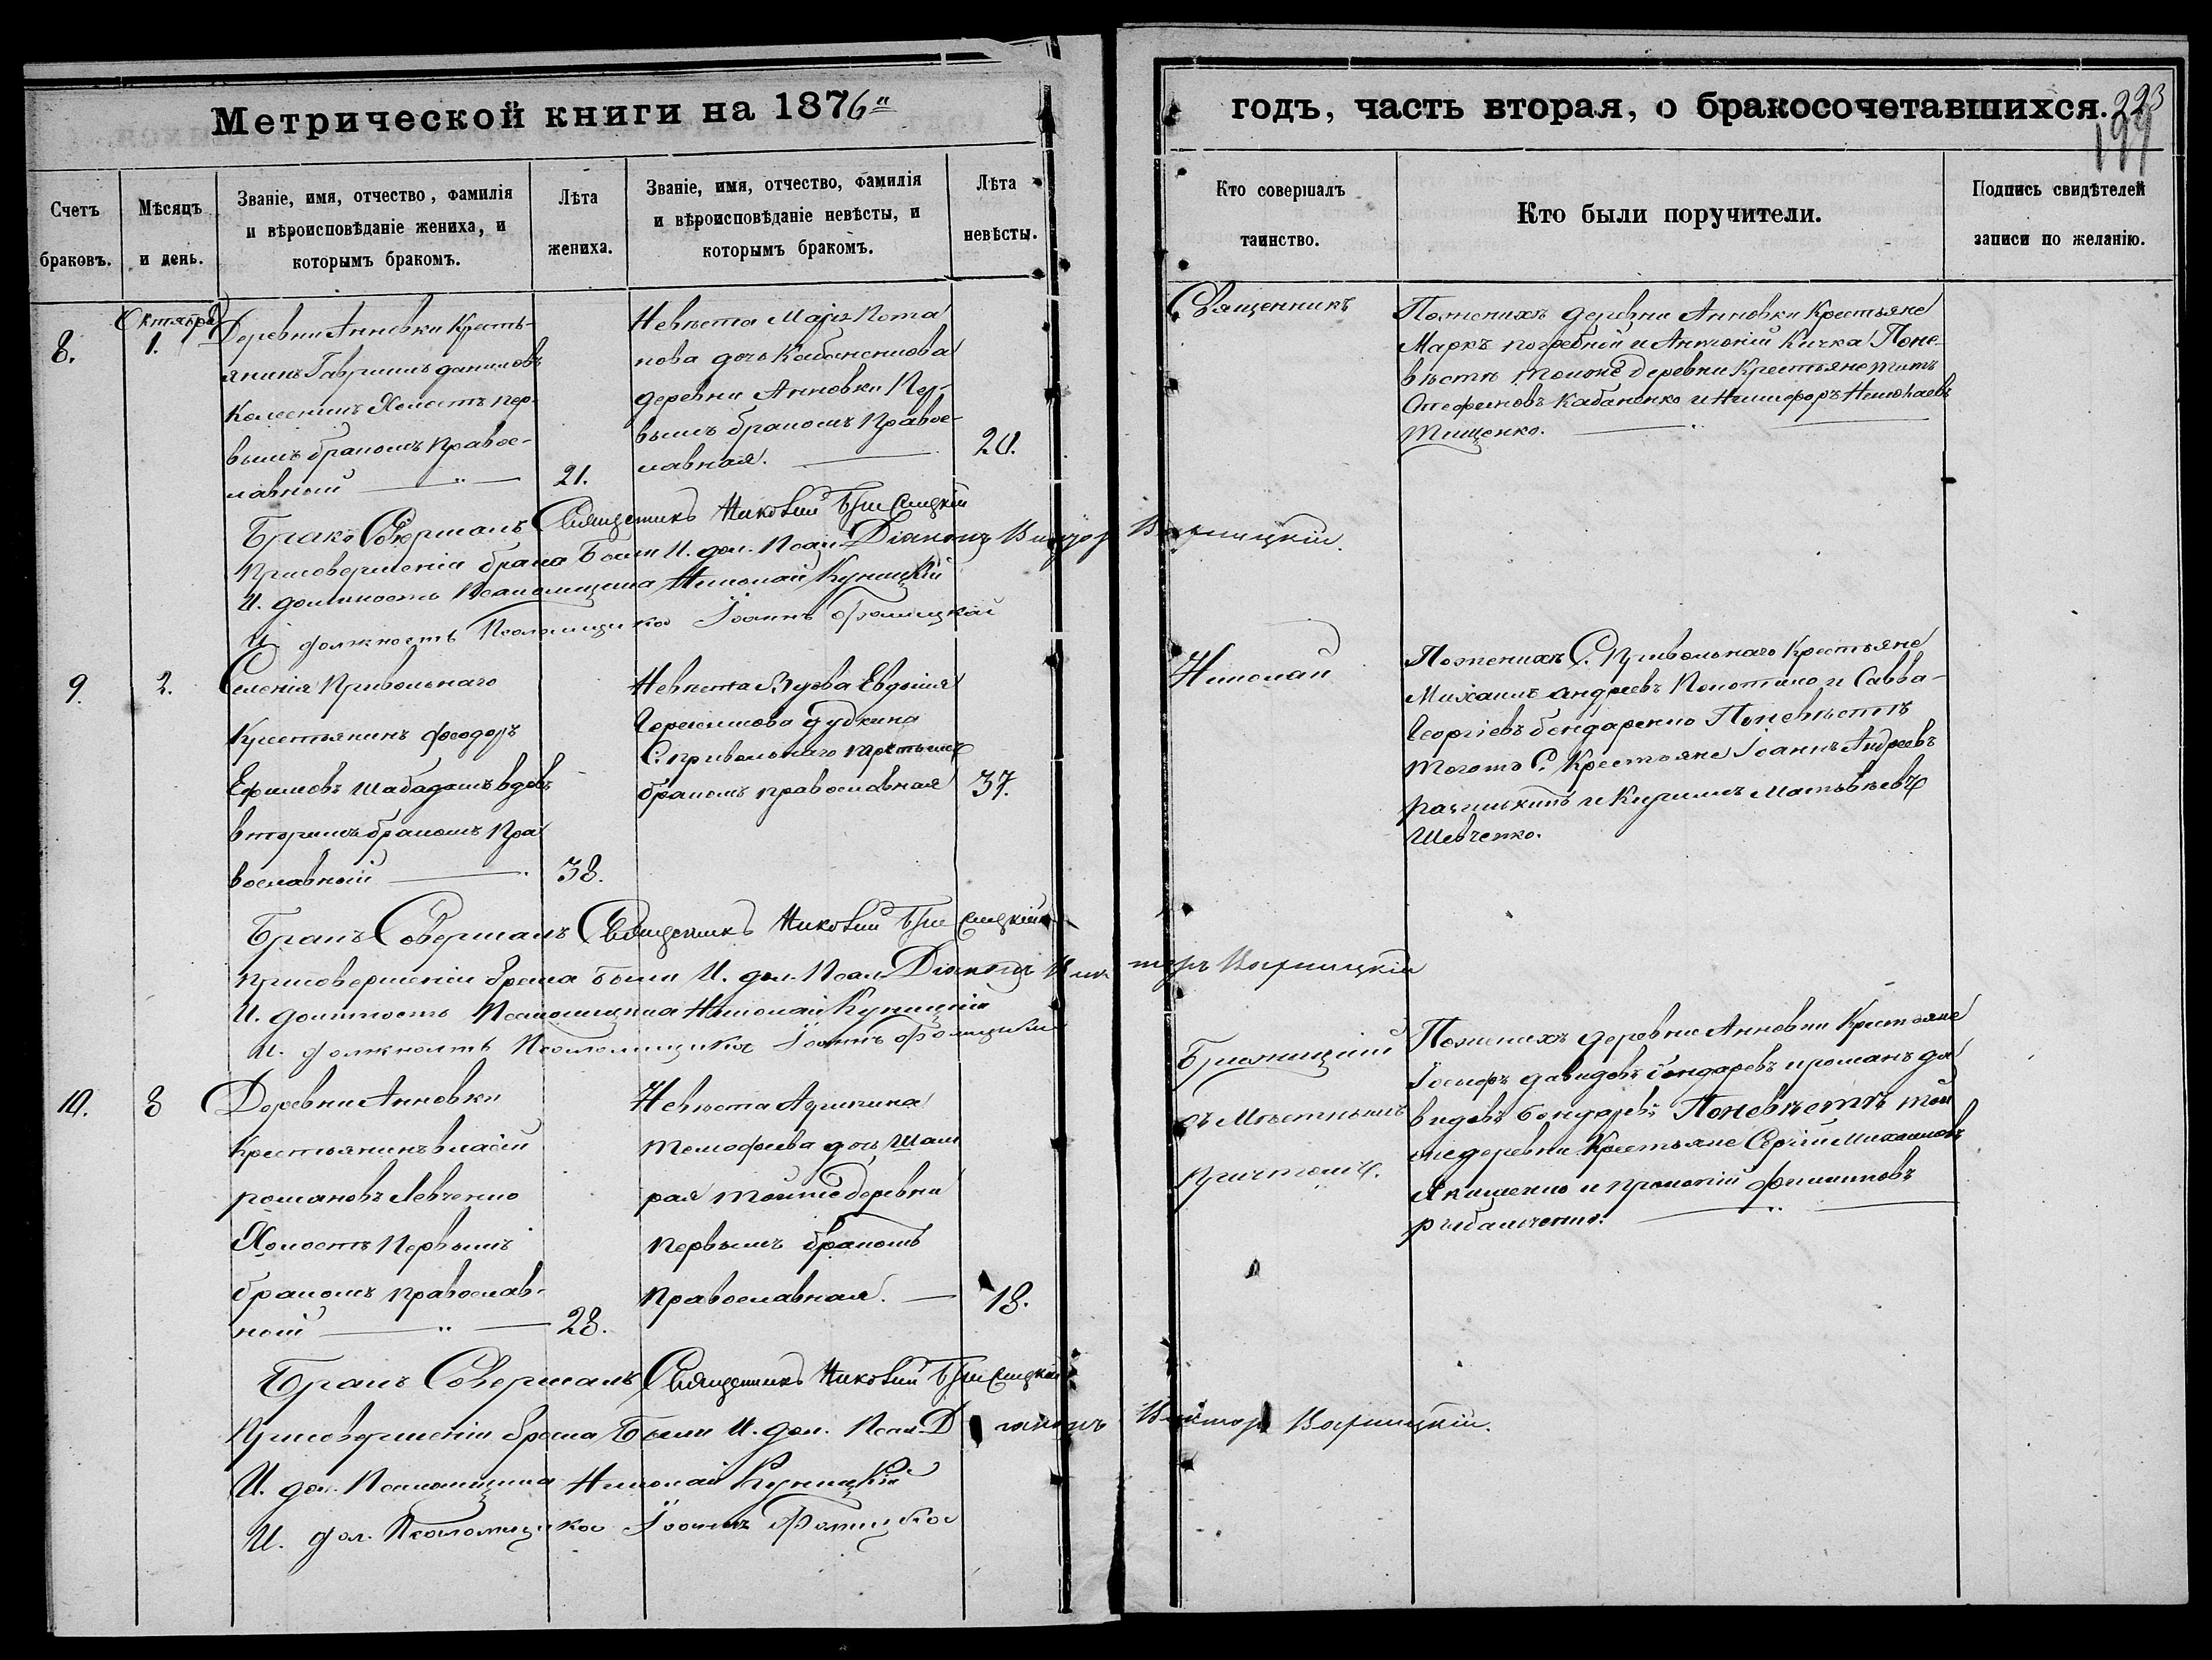 Метрической книги на 1876
годъ, часть вторая, о бракосочетавшихся. 223
199
Счетъ браковъ.
Мѣсяцъ и день.
Званіе, имя, отчество, фамилія
и вѣроисповѣданіе жениха, и
которымъ бракомъ.
Лѣта жениха.
Званіе, имя, отчество, фамилія
и вѣроисповѣданіе невѣсты, и
которымъ бракомъ.
Лѣта невѣсты.
Кто совершалъ
таинство.
Кто были поручители.
Подпись свидѣтелей
записи по желанію.
8.
Октября
1.
Деревни Анновки Кресть-
янинъ Гавриилъ даниловъ
Колесникъ Холостъ пер-
вымъ бракомъ Правос-
лавный
21.
Невѣста Марія Пота
пова дочь Кабаненкова
деревни Анновки Пер-
вымъ бракомъ Правос-
лавная.
20.
Священникъ
Поженихѣ деревни Анновки Крестьяне
Маркъ погребной и Антоній Кичка Поне-
вѣстѣ тоиже деревни Крестьяне титъ
Стефановъ Кабаненко и Никифоръ Николаевъ
Тищенко.
Бракъ Совершалъ Священникъ Николай
Присовершеніи брака Были И. дол. Псал. Діаконъ Викторъ Варницкій.
И. должность Псаломщика Николай Куницкій
И. должность Псаломщика Іоаннъ Фомицкій
9.
2.
Селенія Привольнаго
Крестьянинъ феодоръ
Ефимовъ Шабадашъ вдовъ
вторымъ бракомъ Пра
вославный
38.
Невѣста Вдова Евдокія
Герасимова дудкина
С. привольнаго третьимъ
бракомъ православная
37.
Николай
Поженихѣ С. Привольнаго Крестьяне
Михаилъ андреевъ и Савва-
Георгіевъ бондаренко Поневѣстѣ
тогожъ С. Крестьяне Іоаннъ Андреевъ
и Кирилъ Матвѣевъ
Шевченко.
Бракъ Совершалъ Священникъ Николай
присовершеніи брака были И. дол. Псал. Діаконъ Викторъ Варницкій
И. должность Псаломщика Николай Куницкій
И. должность Псаломщика Іоаннъ Фомицкій
10.
3
Деревни Анновки
Крестьянинъ власій
романовъ Левченко
Холостъ Первымъ
бракомъ православ-
ной
28.
Невѣста Акилина
тимофеева дочь
рая тойже деревни
первымъ бракомъ
Православная.
18.
съ Мѣстнымъ
Причтомъ.
Поженихѣ деревни Анновки Крестьяне
Іосифъ давидовъ бондаревъ и романъ да
видовъ Бондаревъ Поневѣстѣ той
же деревни Крестьяне Сергій Михаиловъ
Якименко и прокопій филиповъ
рыбальченко.
Бракъ Совершалъ Священникъ Николай
Присовершеніи брака Были И. дол. Псал. Діаконъ Викторъ Варницкій.
И. дол. Псаломщика Николай Куницкій
И. дол. Псаломщика Іоаннъ Фомицкій